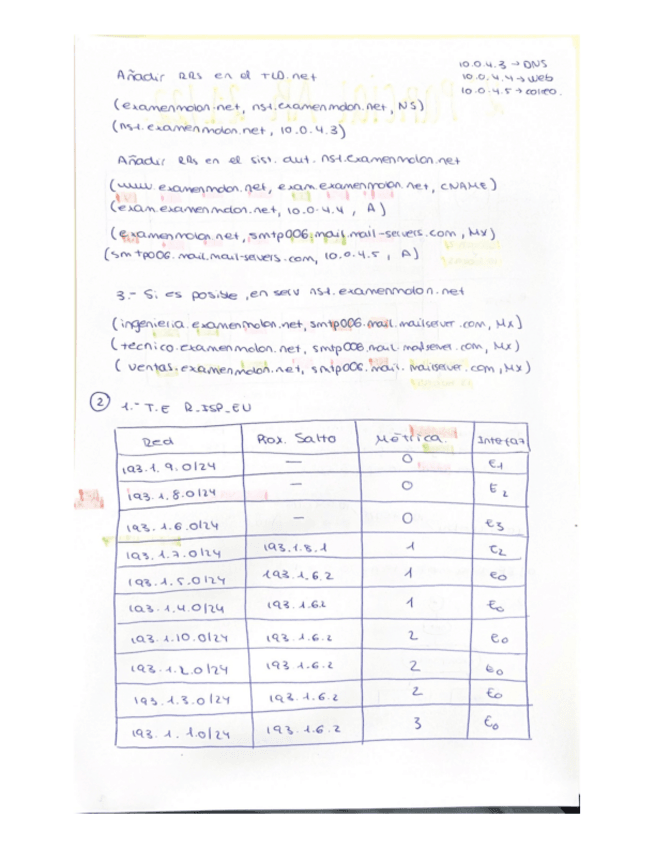 10.0.4.3 → DNS
10.0.4.4 → Web
10.0.4.5 → correo.
Añadir RRs en el TLD.net
(examenmolon.net, ns1.examenmolon.net, NS)
(ns1.examenmolon.net, 10.0.4.3)
Añadir RRs en el sist. aut. ns1.examenmolon.net
(www.examenmolon.net, exam.examenmolon.net, CNAME)
(exam.examenmolon.net, 10.0.4.4, A)
(examenmolon.net, smtp006.mail.mail-servers.com, MX)
(smtp006.mail.mail-servers.com, 10.0.4.5, A)
3.- Si es posible, en serv ns1.examenmolon.net
(ingenieria.examenmolon.net, smtp006.mail.mailserver.com, MX)
(tecnico.examenmolon.net, smtp006.mail.mailserver.com, MX)
(ventas.examenmolon.net, smtp006.mail.mailserver.com, MX)
2 1.- T.E R_ISP_EU
Red Prox. Salto Métrica Interfaz
193.1.9.0/24 — 0 e1
193.1.8.0/24 — 0 E2
193.1.6.0/24 — 0 e3
193.1.7.0/24 193.1.8.1 1 E2
193.1.5.0/24 193.1.6.2 1 e0
193.1.4.0/24 193.1.6.2 1 E0
193.1.10.0/24 193.1.6.2 2 e0
193.1.2.0/24 193.1.6.2 2 e0
193.1.3.0/24 193.1.6.2 2 E0
193.1.1.0/24 193.1.6.2 3 E0